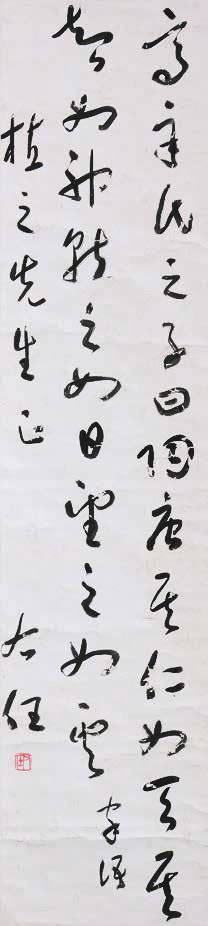 高辛氏之子曰陶唐其仁如天其
智如神就之如日望之如雲家語
植之先生正
右任